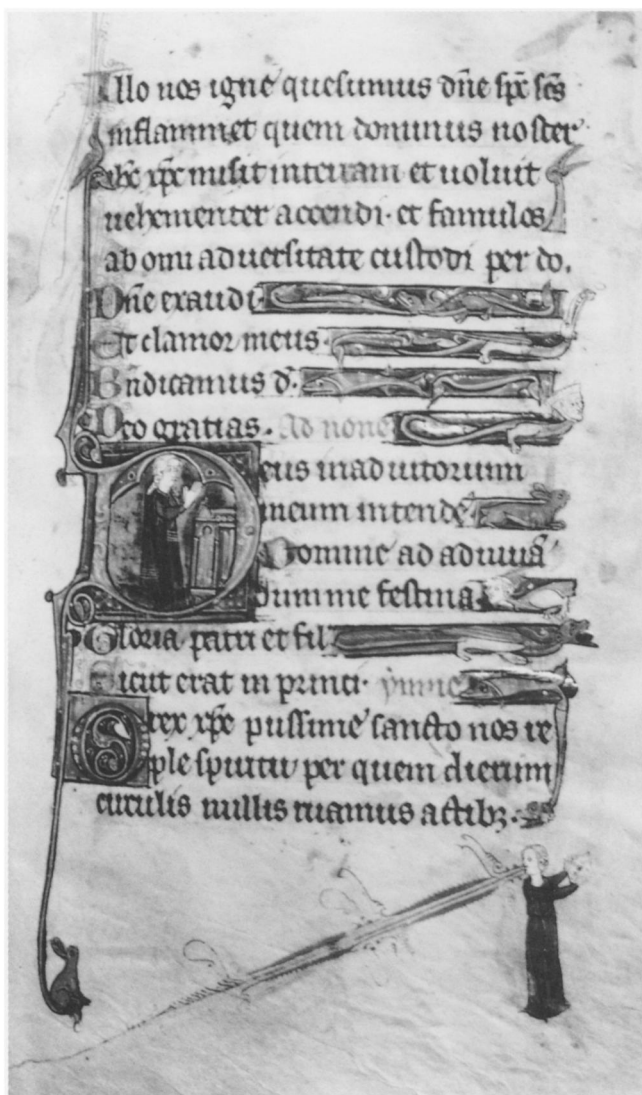 Illo nos igne quesumus dñe spc scs
inflammet quem dominus noster
ihc xpc misit in terram et uoluit
uehementer accendi · et famulos
ab omni aduersitate custodi per do.
Dñe exaudi·
Et clamor meus ·
Bndicamus d.
Deo gratias · Ad none
Deus in adiutorium
meum intende
Domine ad adiuuā
dum me festina
Gloria patri et fil
Sicut erat in princi· ymne
O rex xpe piissime sancto nos re
ple spiritu per quem dierum
circulis nullis ruamus actibꝫ ·